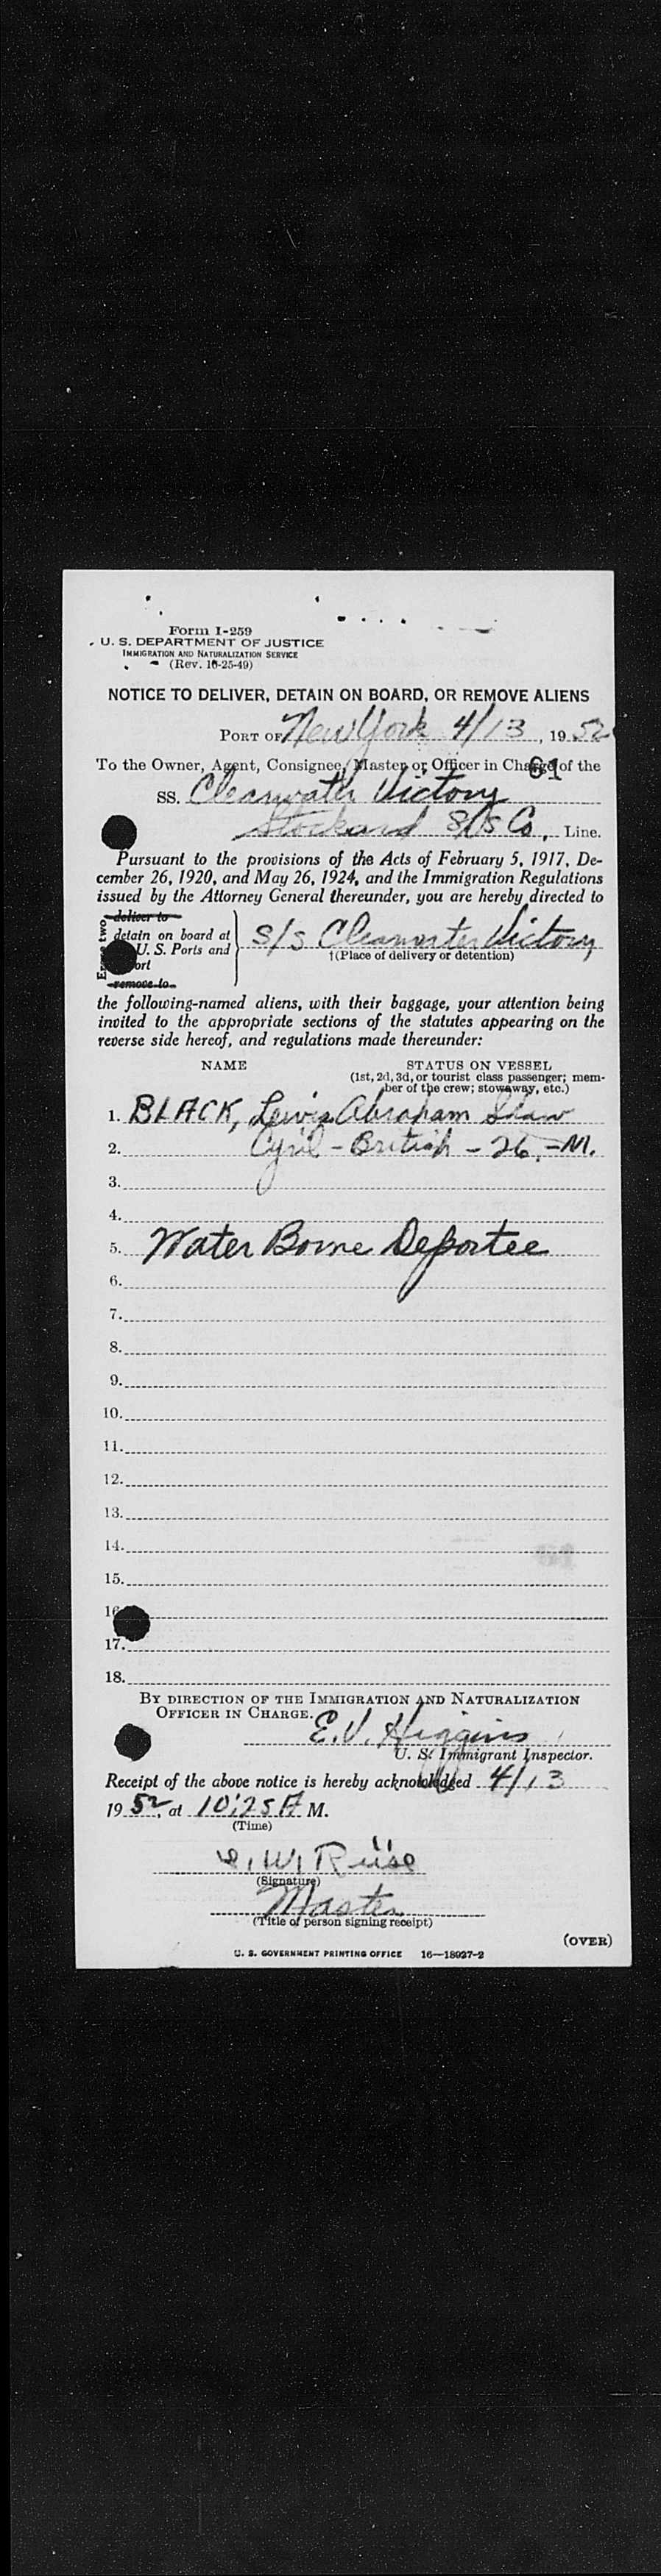 Form I-259
U. S. DEPARTMENT OF JUSTICE
IMMIGRATION AND NATURALIZATION SERVICE
(Rev. 10-25-49)
NOTICE TO DELIVER, DETAIN ON BOARD, OR REMOVE ALIENS
PORT OF New York 4/13, 1952
61
To the Owner, Agent, Consignee, Master or Officer in Charge of the
SS. Clearwater Victory
Stockard S/S Co. Line.
Pursuant to the provisions of the Acts of February 5, 1917, De-
cember 26, 1920, and May 26, 1924, and the Immigration Regulations
issued by the Attorney General thereunder, you are hereby directed to
Erase two
deliver to
detain on board at
U. S. Ports and
remove to
S/S Clearwater Victory
†(Place of delivery or detention)
the following-named aliens, with their baggage, your attention being
invited to the appropriate sections of the statutes appearing on the
reverse side hereof, and regulations made thereunder:
NAME STATUS ON VESSEL
(1st, 2d, 3d, or tourist class passenger; mem-
ber of the crew; stowaway, etc.)
1. BLACK, Lewis Abraham Shaw
2. Cyril - British - 26 - M.
3.
4.
5. Water Borne Deportee
6.
7.
8.
9.
10.
11.
12.
13.
14.
15.
16
17.
18.
BY DIRECTION OF THE IMMIGRATION AND NATURALIZATION
OFFICER IN CHARGE.
E. V. Higgins
U. S. Immigrant Inspector.
Receipt of the above notice is hereby acknowledged 4/13
1952, at 10:25 A M.
(Time)
(Signature)
Master
(Title of person signing receipt)
(OVER)
U. S. GOVERNMENT PRINTING OFFICE 16—18927-2